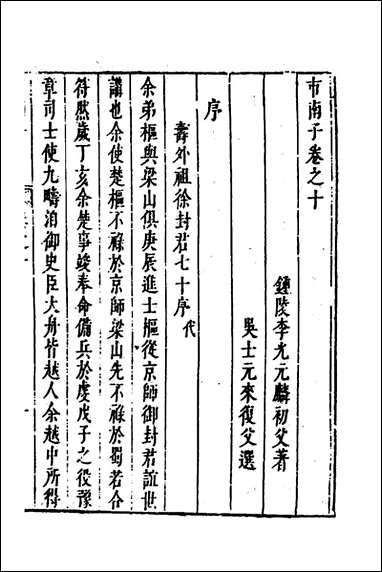 市南子卷之十
鍾陵李光元麟初父著
吳士元來復父選
序
壽外祖徐封君七十序代
余弟樞與梁山俱庚辰進士樞從京師御封君誼世
講也余使楚樞不祿於京師梁山先不祿於蜀若合
符然歲丁亥余楚事竣奉命備兵於虔戊子之役豫
章司士使九疇洎御史臣大舟皆越人余越中所得